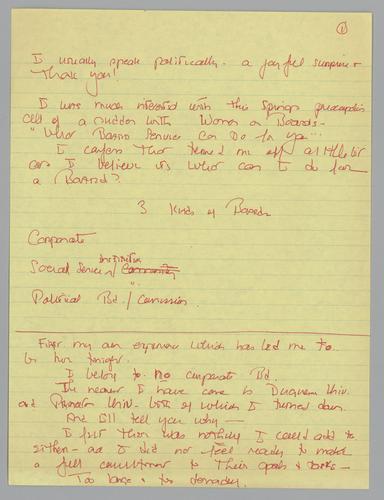 1
I usually speak politically - a joyful surprise +
Thank you!
I was much interested with this Springs
call of a sudden with Women on Boards -
"What Board Service Can Do for you"
I confess that turned me off a little bit
I believe its what can I do for
a Board?
3 Kinds of Boards
Corporate
Social Service / Institution
Political Bd. / Commission
First my own experience which has led me to
be here tonight.
I belong to no corporate Bd.
The nearest I have come is Duquesne Univ.
and Univ. both of which I turned down.
And I'll tell you why -
I felt there was nothing I could add to
either - and I did not feel ready to make
a full commitment to their goals & tasks -
Too large & too demanding.